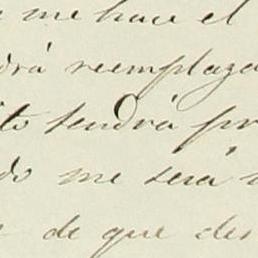 me hace el
drá reemplaza
to tendrá pr
do me será
de que des